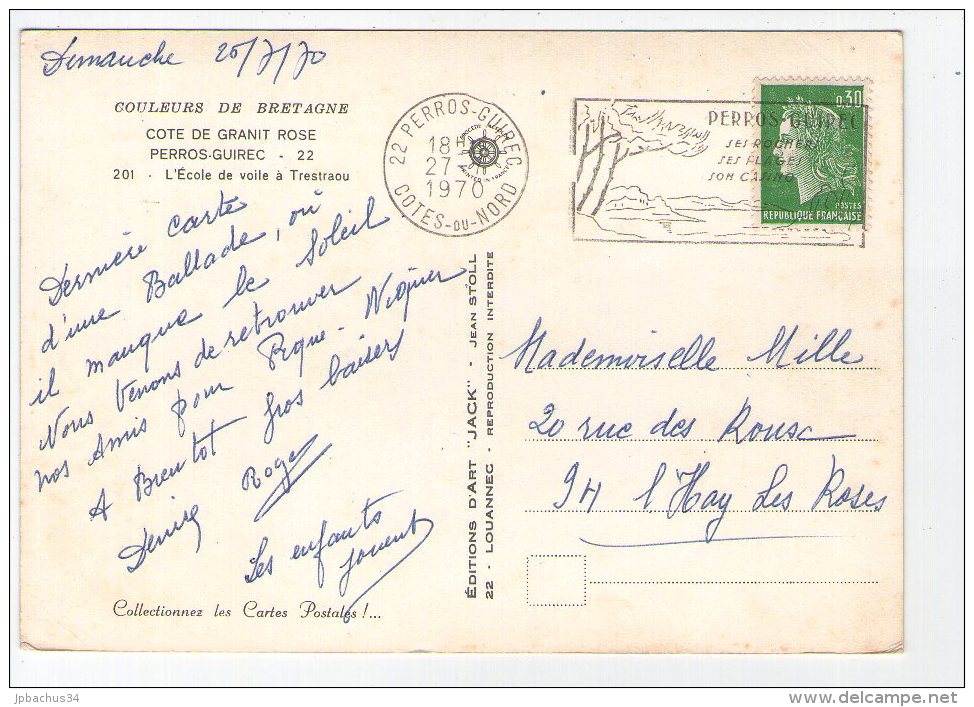 Dimanche 26/7/70
COULEURS DE BRETAGNE
COTE DE GRANIT ROSE
PERROS-GUIREC - 22
201 - L'École de voile à Trestraou
22 PERROS-GUIREC
18H
27 -
1970
COTES-DU-NORD
PERROS-GUIREC
SES ROCHERS
SES PLAGES
SON CASINO
0,30
POSTES
REPUBLIQUE FRANÇAISE
Dernière carte
d'une Ballade, où
il manque le Soleil
Nous venons de retrouver
nos Amis pour Pique-Niquer
A Bientot gros baisers
Denise Roger
Les enfants
jouent
Collectionnez les Cartes Postales !...
ÉDITIONS D'ART "JACK" - JEAN STOLL
22 - LOUANNEC - REPRODUCTION INTERDITE
Mademoiselle Mille
20 rue des
94 l'Hay Les Roses
jpbachus34
www.delcampe.net